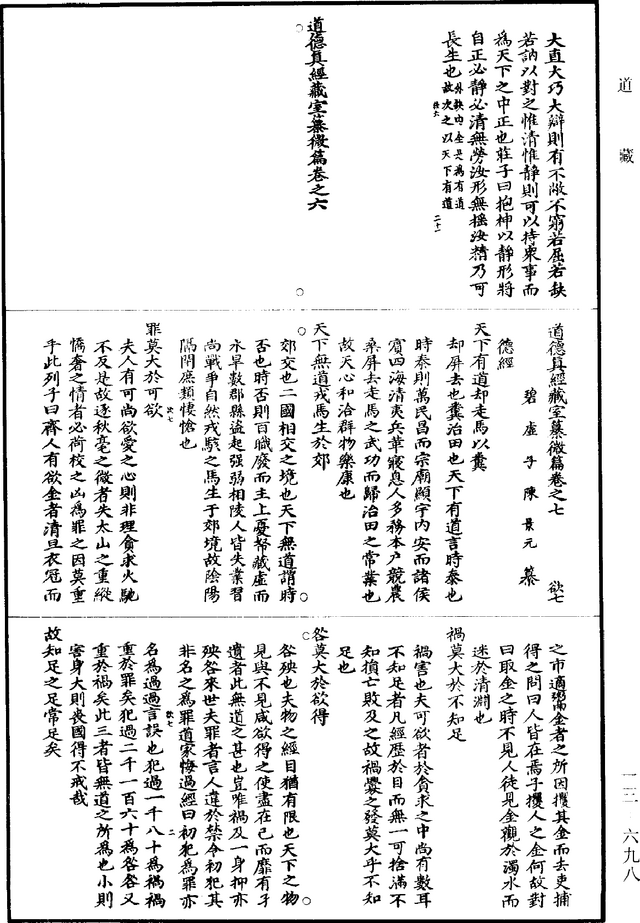 道藏
大直大巧大辯則有不敝不窮若屈若缺
若訥以對之惟清惟靜則可以持衆事而
為天下之中正也莊子曰抱神以靜形將
自正必靜必清無勞汝形無搖汝精乃可
長生也外缺內全是為有道故次之以天下有道
效六 二十一
道德真經藏室纂微篇卷之六
道德真經藏室纂微篇卷之七 欲七
碧虛子陳景元纂
德經
天下有道却走馬以糞
却屏去也糞治田也天下有道言時泰也
時泰則萬民昌而宗廟顯宇內安而諸侯
賓四海清夷兵革寢息人多務本户競農
桑屏去走馬之武功而歸治田之常業也
故天心和洽群物樂康也
天下無道戎馬生於郊
郊交也二國相交之境也天下無道謂時
否也時否則百職廢而主上憂帑藏虛而
水旱數郡縣盜起強弱相陵人皆失業習
尚戰爭自然戎駭之馬生于郊境故陰陽
隔閉庶類悽愴也
罪莫大於可欲 欲七
夫人有可尚欲愛之心則非理貪求火馳
不反是故逐秋毫之微者失太山之重縱
憍奢之情者必荷校之凶為罪之因莫重
乎此列子曰齊人有欲金者清旦衣冠而
之市適鬻金者之所因攫其金而去吏捕
得之問曰人皆在焉子攫人之金何故對
曰取金之時不見人徒見金觀於濁水而
迷於清淵也
禍莫大於不知足
禍害也夫可欲者於貪求之中尚有數耳
不知足者凡經歷於目而無一可捨滿不
知損亡敗及之故禍釁之發莫大乎不知
足也
咎莫大於欲得
咎殃也夫物之經目猶有限也天下之物
見與不見咸欲得之使盡在己而靡有孑
遺者此無道之甚也豈唯禍及一身抑亦
殃咎來世夫罪者言人違於禁令初犯其
非名之為罪道家悔過經曰初犯為罪亦
欲七 二
名為過過言誤也犯過一千八十為禍禍
重於罪矣犯過二千一百六十為咎咎又
重於禍矣此三者皆無道之所為也小則
害身大則喪國得不戒哉
故知足之足常足矣
一三·六九八